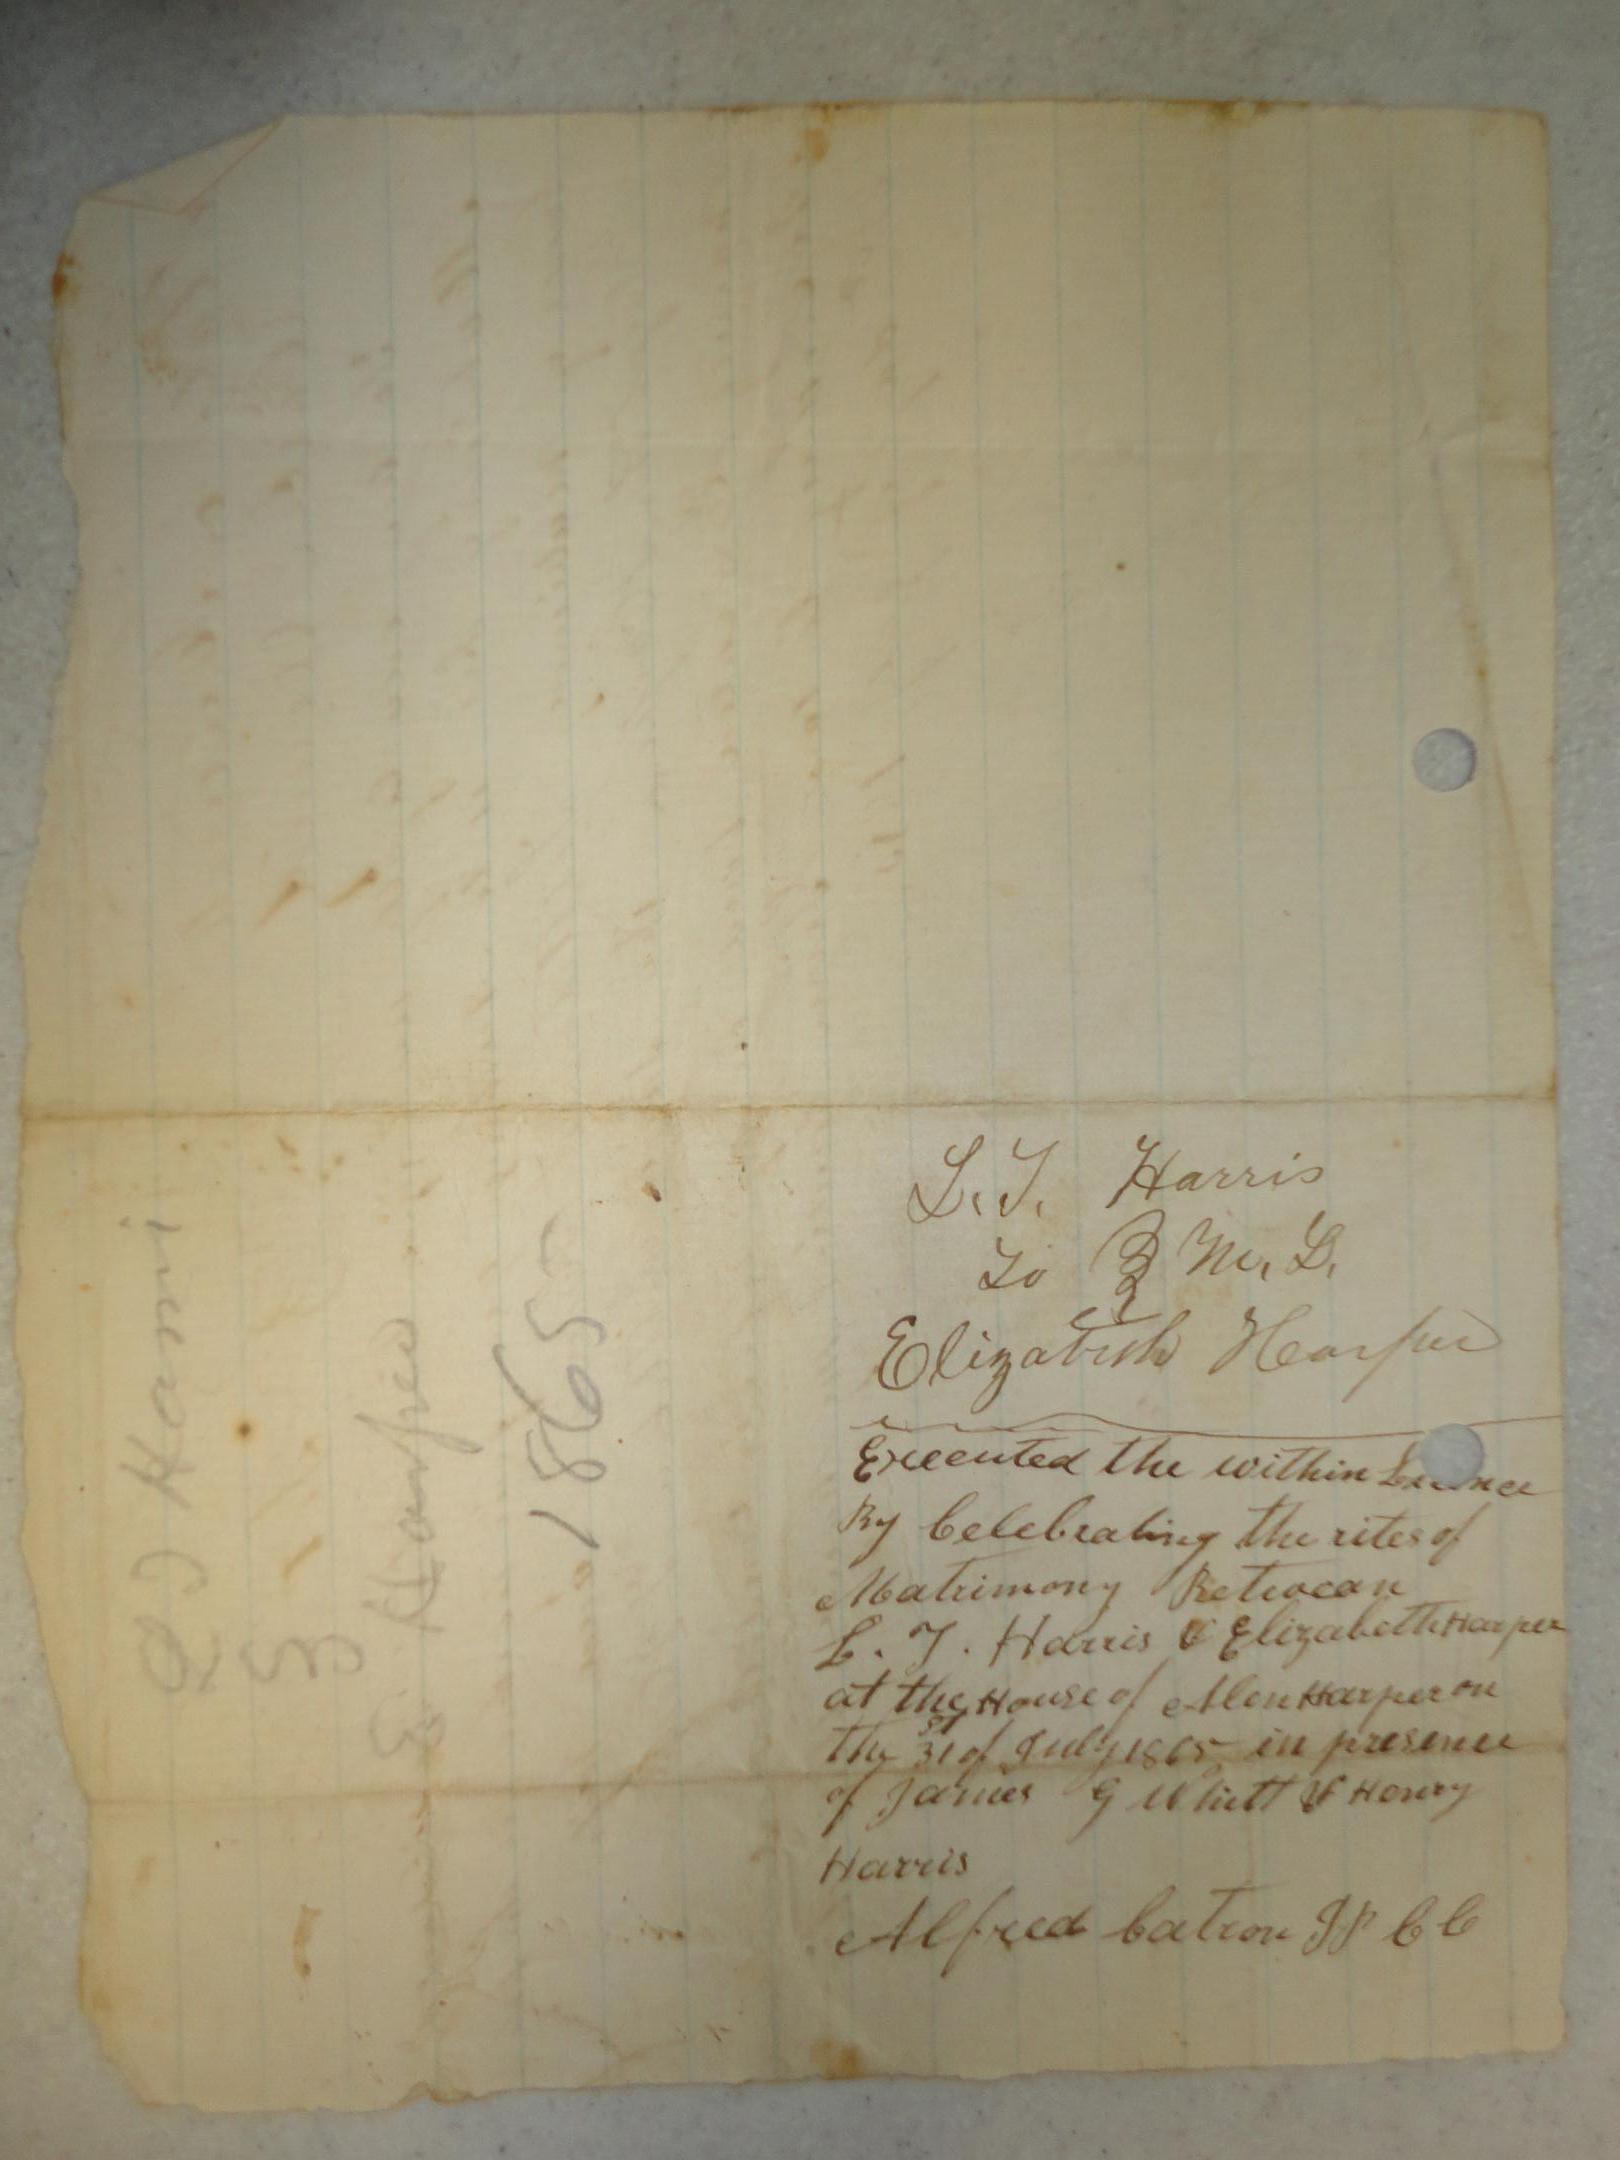 L. T. Harris
To } M. L.
Elizabeth Harper
Executed the within
By Celebrating the rites of
Matrimony Between
L. T. Harris & Elizabeth Harper
at the House of Alen Harper on
the 31st of July 1865 in presence
of James G Whitt & Henry
Harris
Alfred Catron JP CC
Harris
&
E Harper
1865